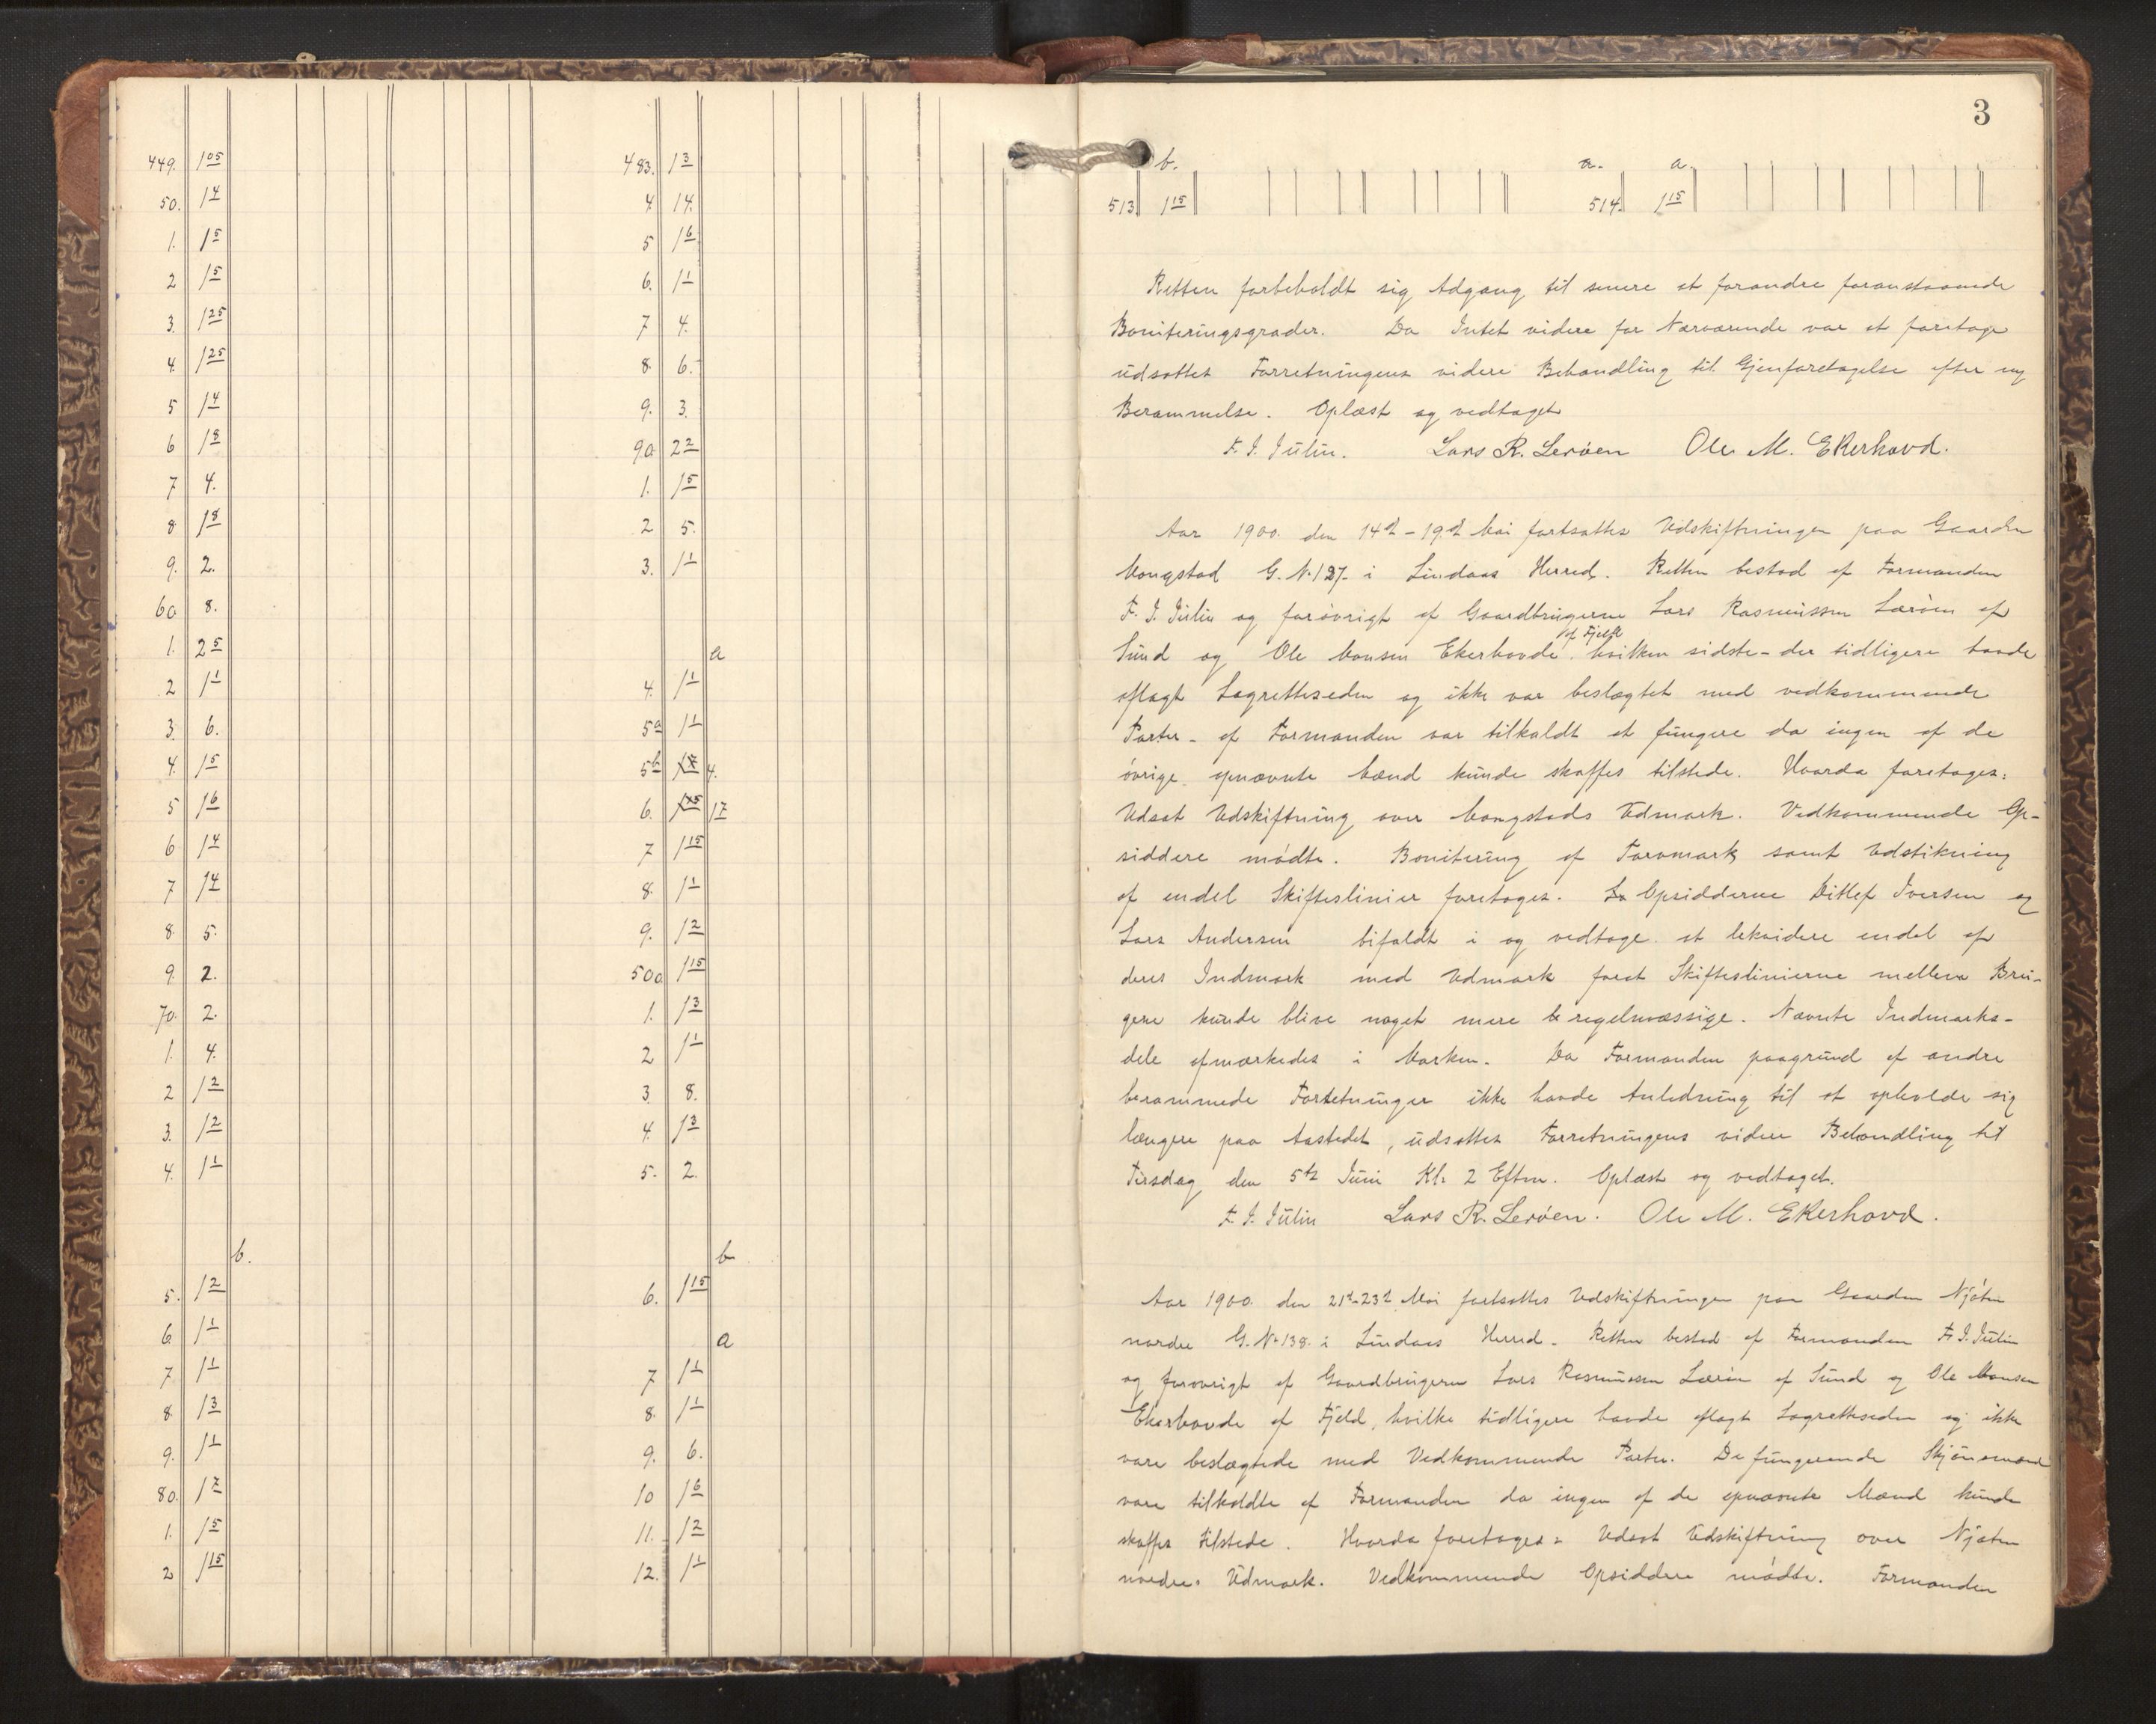 449. 1 05
50. 1 4
1. 1 5
2 1 5
3. 1 25
4. 1 25
5 1 4
6 1 8
7 4.
8 1 8
9. 2.
60 8.
1. 2 5
2 1 1
3. 6.
4. 1 5
5 1 6
6 1 4
7 1 4
8. 5.
9. 2.
70. 2.
1. 4.
2 1 2
3. 1 2
4. 1 1
b.
5. 1 2
6. 1 1
7. 1 1
8. 1 3
9. 1 1
80. 1 2
1. 1 5
2 1 15
483. 1 3
4. 14.
5 1 6
6. 1 1
7 4.
8. 6.
9. 3.
90. 2 2
1. 1 5
2 5.
3. 1 1
a
4. 1 1
5a 1 1
5b 4.
6. 1 7
7 1 15
8. 1 1
9. 1 2
500 1 15
1. 1 3
2 1 1
3. 8.
4. 1 3
5. 2.
b
6. 1 15
a
7 1 1
8. 1 1
9. 6.
10 1 6
11. 1 2
12. 1 1
3
b. a. a.
513 1 15 514. 1 15
Retten forbeholdt sig Adgang til senere at forandre foranstaaende
Boniteringsgrader. Da Intet videre for Nærværende var at foretage
udsattes Forretningens videre Behandling til Gjenforetagelse efter ny
Berammelse. Oplæst og vedtaget
F. J. Julin. Lars R. Lerøen Ole M. Ekerhovd.
Aar 1900. den 14d - 19d Mai fortsattes Udskiftningen paa Gaarden
Mongstad G. N. 127. i Lindaas Herred. Retten bestod af Formanden
F. J. Julin og forøvrigt af Gaardbrugerne Lars Rasmussen Lerøen af
Sund og Ole Monsen Ekerhovde af Fjeld. hvilken sidste - der tidligere havde
aflagt Lagretteseden og ikke var beslægtet med vedkommende
Parter - af Formanden var tilkaldt at fungere da ingen af de
øvrige opnævnte Mænd kunde skaffes tilstede. Hvorda foretoges:
Udsat Udskiftning over Mongstads Udmark. Vedkommende Op-
siddere mødte. Bonitering af Torvmark samt Udstikning
af endel Skifteslinier foretoges. Opsidderne Ditlef Iversen og
Lars Andersen bifaldt i og vedtoge at lekvidere endel af
deres Indmark med Udmark forat Skifteslinierne mellem Bru-
gene kunde blive noget mere regelmæssige. Nævnte Indmarks-
dele afmærkedes i Marken. Da Formanden paagrund af andre
berammede Forretninger ikke havde Anledning til at opholde sig
længere paa Aastedet, udsattes Forretningens videre Behandling til
Tirsdag den 5te Juni Kl. 2 Eftm. Oplæst og vedtaget.
F. J. Julin Lars R. Lerøen. Ole M. Ekerhovd.
Aar 1900. den 21d-23d Mai fortsattes Udskiftningen paa Gaarden Njøten
nordre G. N. 138. i Lindaas Herred. Retten bestod af Formanden F. J. Julin
og forøvrigt af Gaardbrugerne Lars Rasmussen Lerøen af Sund og Ole Monsen
Ekerhovde af Fjeld, hvilke tidligere havde aflagt Lagretteseden og ikke
vare beslægtede med Vedkommende Parter. De fungerende Skjønsmænd
vare tilkaldte af Formanden da ingen af de opnævnte Mænd kunde
skaffes tilstede. Hvorda foretoges: Udsat Udskiftning over Njøten
nordre. Udmark. Vedkommende Opsiddere mødte. Formanden